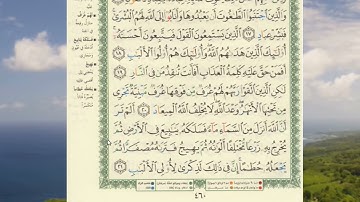 وَٱلَّذِينَ ٱجْتَنَبُوا۟ ٱلطَّٰغُوتَ أَن يَعْبُدُوهَا وَأَنَابُوٓا۟ إِلَى ٱللَّهِ لَهُمُ ٱلْبُشْرَىٰ
فَبَشِّرْ عِبَادِ ١٧ ٱلَّذِينَ يَسْتَمِعُونَ ٱلْقَوْلَ فَيَتَّبِعُونَ أَحْسَنَهُۥٓ
أُو۟لَٰٓئِكَ ٱلَّذِينَ هَدَىٰهُمُ ٱللَّهُ وَأُو۟لَٰٓئِكَ هُمْ أُو۟لُوا۟ ٱلْأَلْبَٰبِ ١٨
أَفَمَنْ حَقَّ عَلَيْهِ كَلِمَةُ ٱلْعَذَابِ أَفَأَنتَ تُنقِذُ مَن فِى ٱلنَّارِ ١٩
لَٰكِنِ ٱلَّذِينَ ٱتَّقَوْا۟ رَبَّهُمْ لَهُمْ غُرَفٌ مِّن فَوْقِهَا غُرَفٌ مَّبْنِيَّةٌ تَجْرِى
مِن تَحْتِهَا ٱلْأَنْهَٰرُ وَعْدَ ٱللَّهِ لَا يُخْلِفُ ٱللَّهُ ٱلْمِيعَادَ ٢٠ أَلَمْ تَرَ
أَنَّ ٱللَّهَ أَنزَلَ مِنَ ٱلسَّمَآءِ مَآءً فَسَلَكَهُۥ يَنَٰبِيعَ فِى ٱلْأَرْضِ ثُمَّ
يُخْرِجُ بِهِۦ زَرْعًا مُّخْتَلِفًا أَلْوَٰنُهُۥ ثُمَّ يَهِيجُ فَتَرَىٰهُ مُصْفَرًّا ثُمَّ
يَجْعَلُهُۥ حُطَٰمًا إِنَّ فِى ذَٰلِكَ لَذِكْرَىٰ لِأُو۟لِى ٱلْأَلْبَٰبِ ٢١
٤٦٠